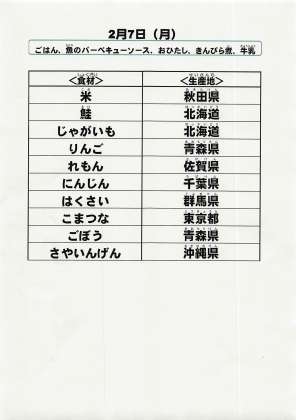 2月7日（月）
ごはん、魚のバーベキューソース、おひたし、きんぴら煮、牛乳
＜食材＞ ＜生産地＞
米 秋田県
鮭 北海道
じゃがいも 北海道
りんご 青森県
れもん 佐賀県
にんじん 千葉県
はくさい 群馬県
こまつな 東京都
ごぼう 青森県
さやいんげん 沖縄県